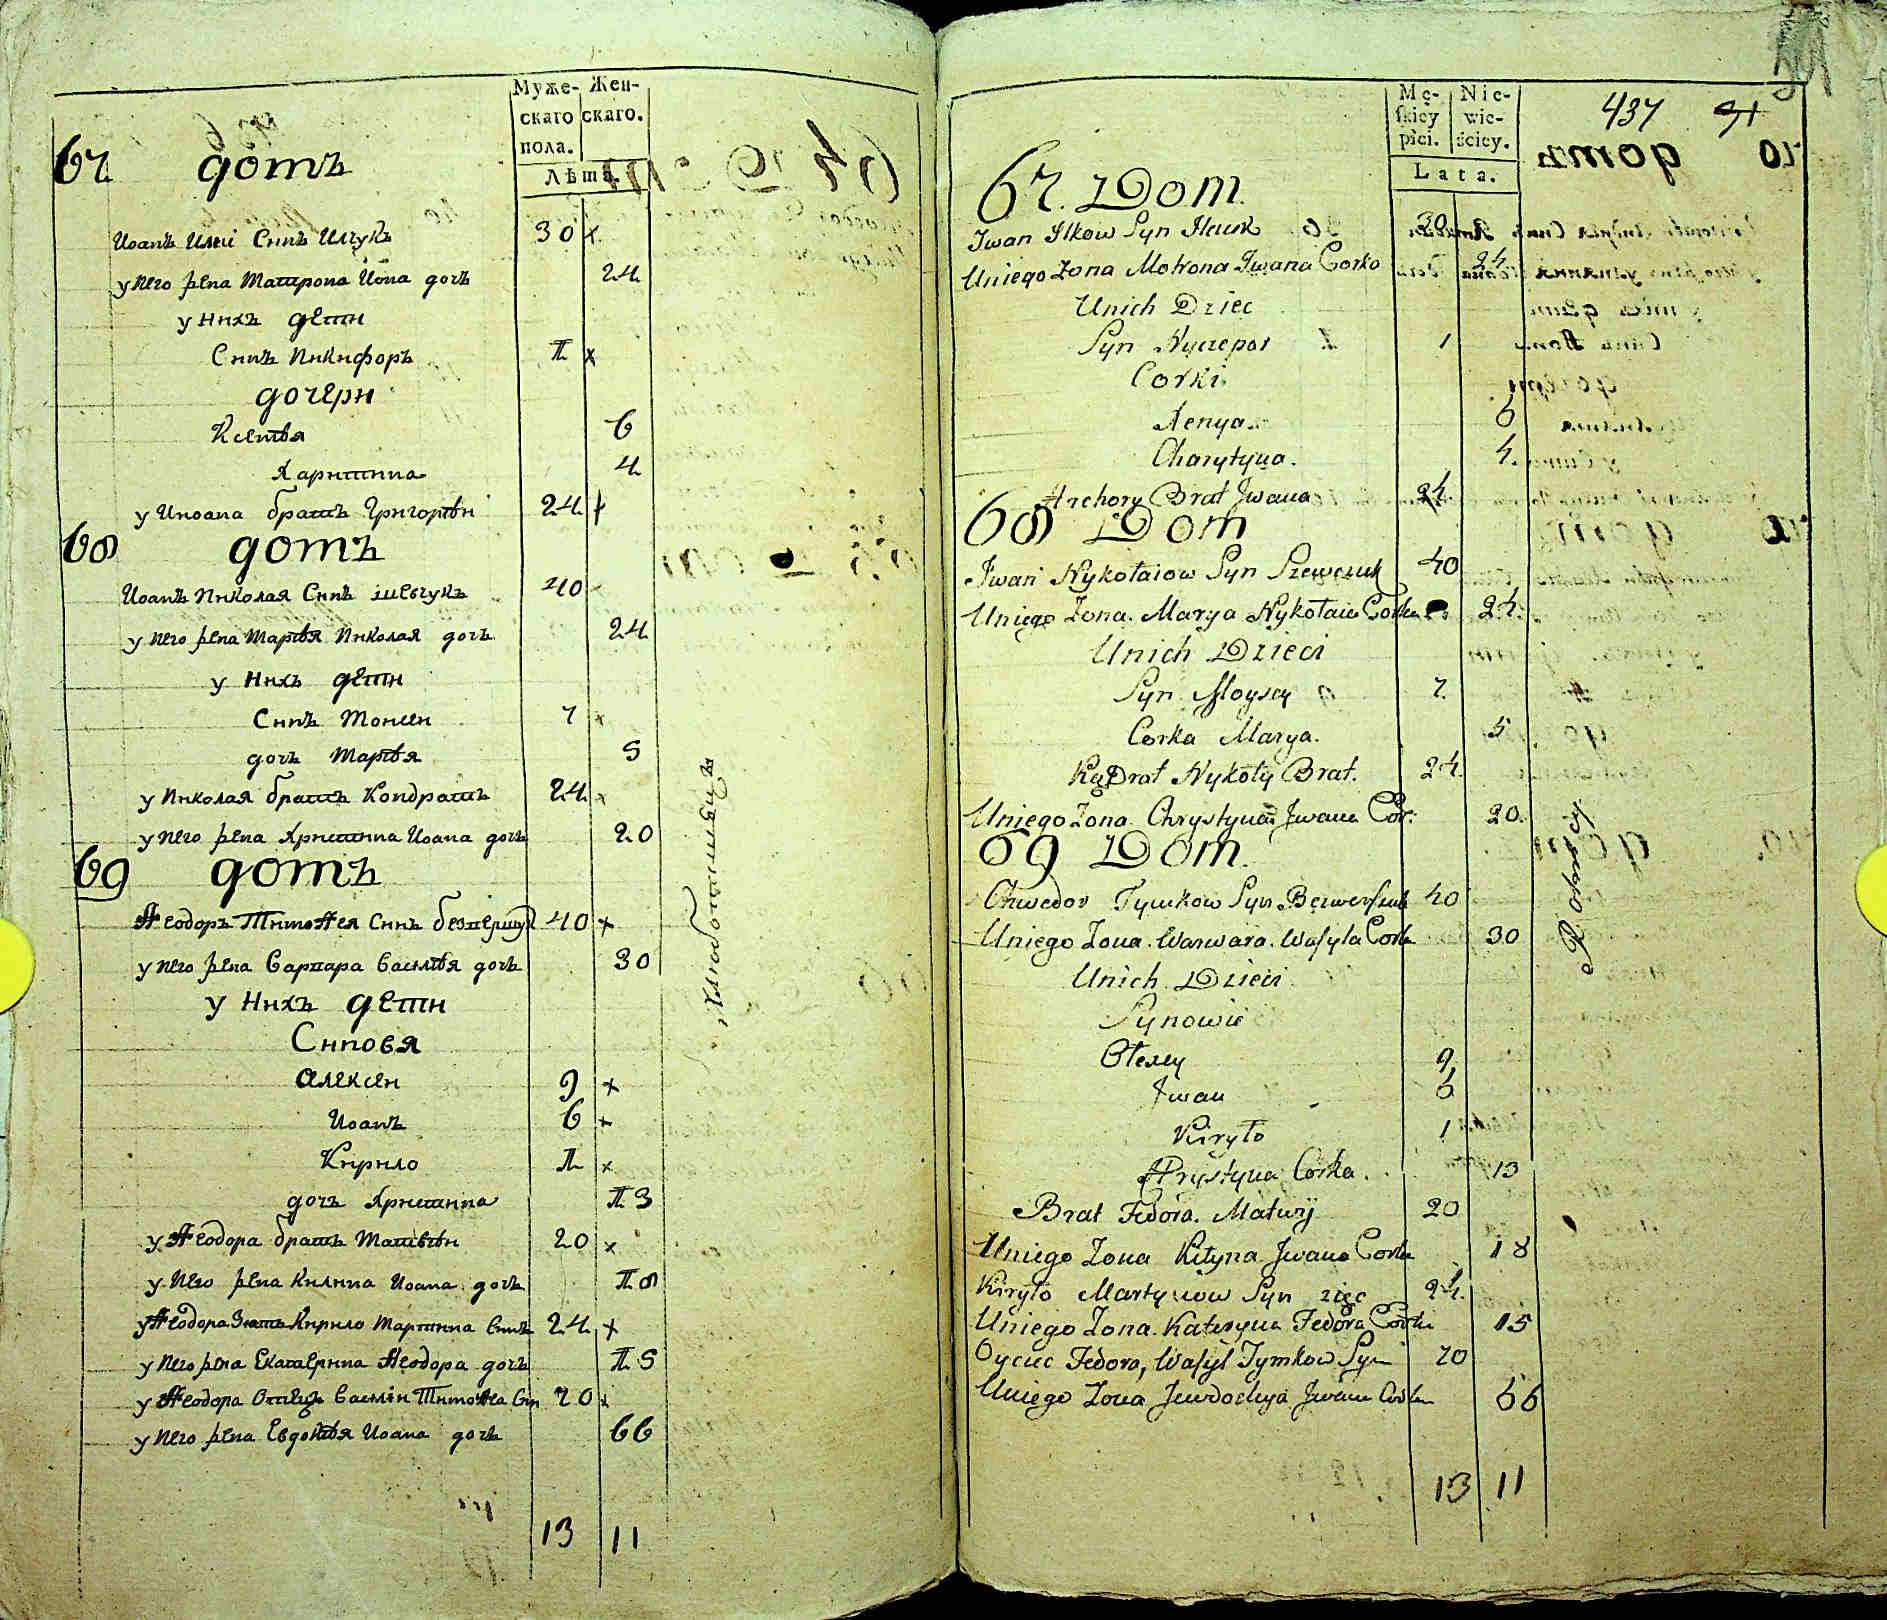 Муже-
скаго
пола.
Жен-
скаго.
Лѣта.
67 домъ
Иоанъ Илеи Синъ Илчукъ 30 x
у него жена Матрона Иона дочъ 24
у Нихъ дети
Синъ Никифоръ 1 x
дочери
Ксенѣя 6
Харитина 4
у Иноана братъ Григорѣи 24
68 домъ
Иоанъ Николая Синъ шевчукъ 40
у него жена Марѣя Николая дочъ 24
у Нихъ дети
Синъ Моисеи 7 x
дочъ Марѣя 5
у Николая братъ Кондратъ 24 x
у него жена Христина Иоана дочъ 20
69 домъ
Феодоръ Тимофея Синъ 40 x
у него жена Варвара Василѣя дочъ 30
у Нихъ дети
Синовя
Алексеи 9 x
Иоанъ 6 x
Кирило 1 x
дочъ Христина 13
у Феодора братъ Матвѣи 20 x
у него жена Килина Иоана дочъ 18
у Феодора Зять Кирило Мартина Синъ 24 x
у него жена Екатерина Феодора дочъ 15
у Феодора Отецъ Василіи Тимофеа Син 70 x
у него жена Евдокѣя Иоана дочъ 66
13 11
Mę-
ſkiey
płci.
Nie-
wie-
ściey.
Lata.
437 91
67. Dom.
Jwan Ilkow Syn Ilczuk 30
Uniego Zona Motrona Jwana Corka 24
Unich Dziec
Syn Nyczepor 1
Corki
Xenya 6
Charytyna. 4.
Hrehory Brat Jwana 24
68 Dom
Jwan Nykołaiow Syn Szewczuk 40
Uniego Zona. Marya Nykołaia Corka 24.
Unich Dzieci
Syn Moysey 7.
Corka Marya. 5
Kądrat Nykoły Brat. 24.
Uniego Zona. Chrystyna Jwana Cor: 20.
69 Dom.
Chwedor Tymkow Syn 40
Uniego Zona. Warwara. Waſyla Corka 30
Unich Dzieci
Synowie
Ołexey 9
Jwan 6
Kiryło 1
Chrystyna Corka. 13
Brat Fedora. Matwij 20
Uniego Zona Kilyna Jwana Corka 18
Kiryło Martynow Syn zięc 24.
Uniego Zona. Kateryna Fedora Corka 15
Oyciec Fedora, Waſyl Tymkow Syn 70
Uniego Zona Jewdochya Jwana Corka 66
13 11